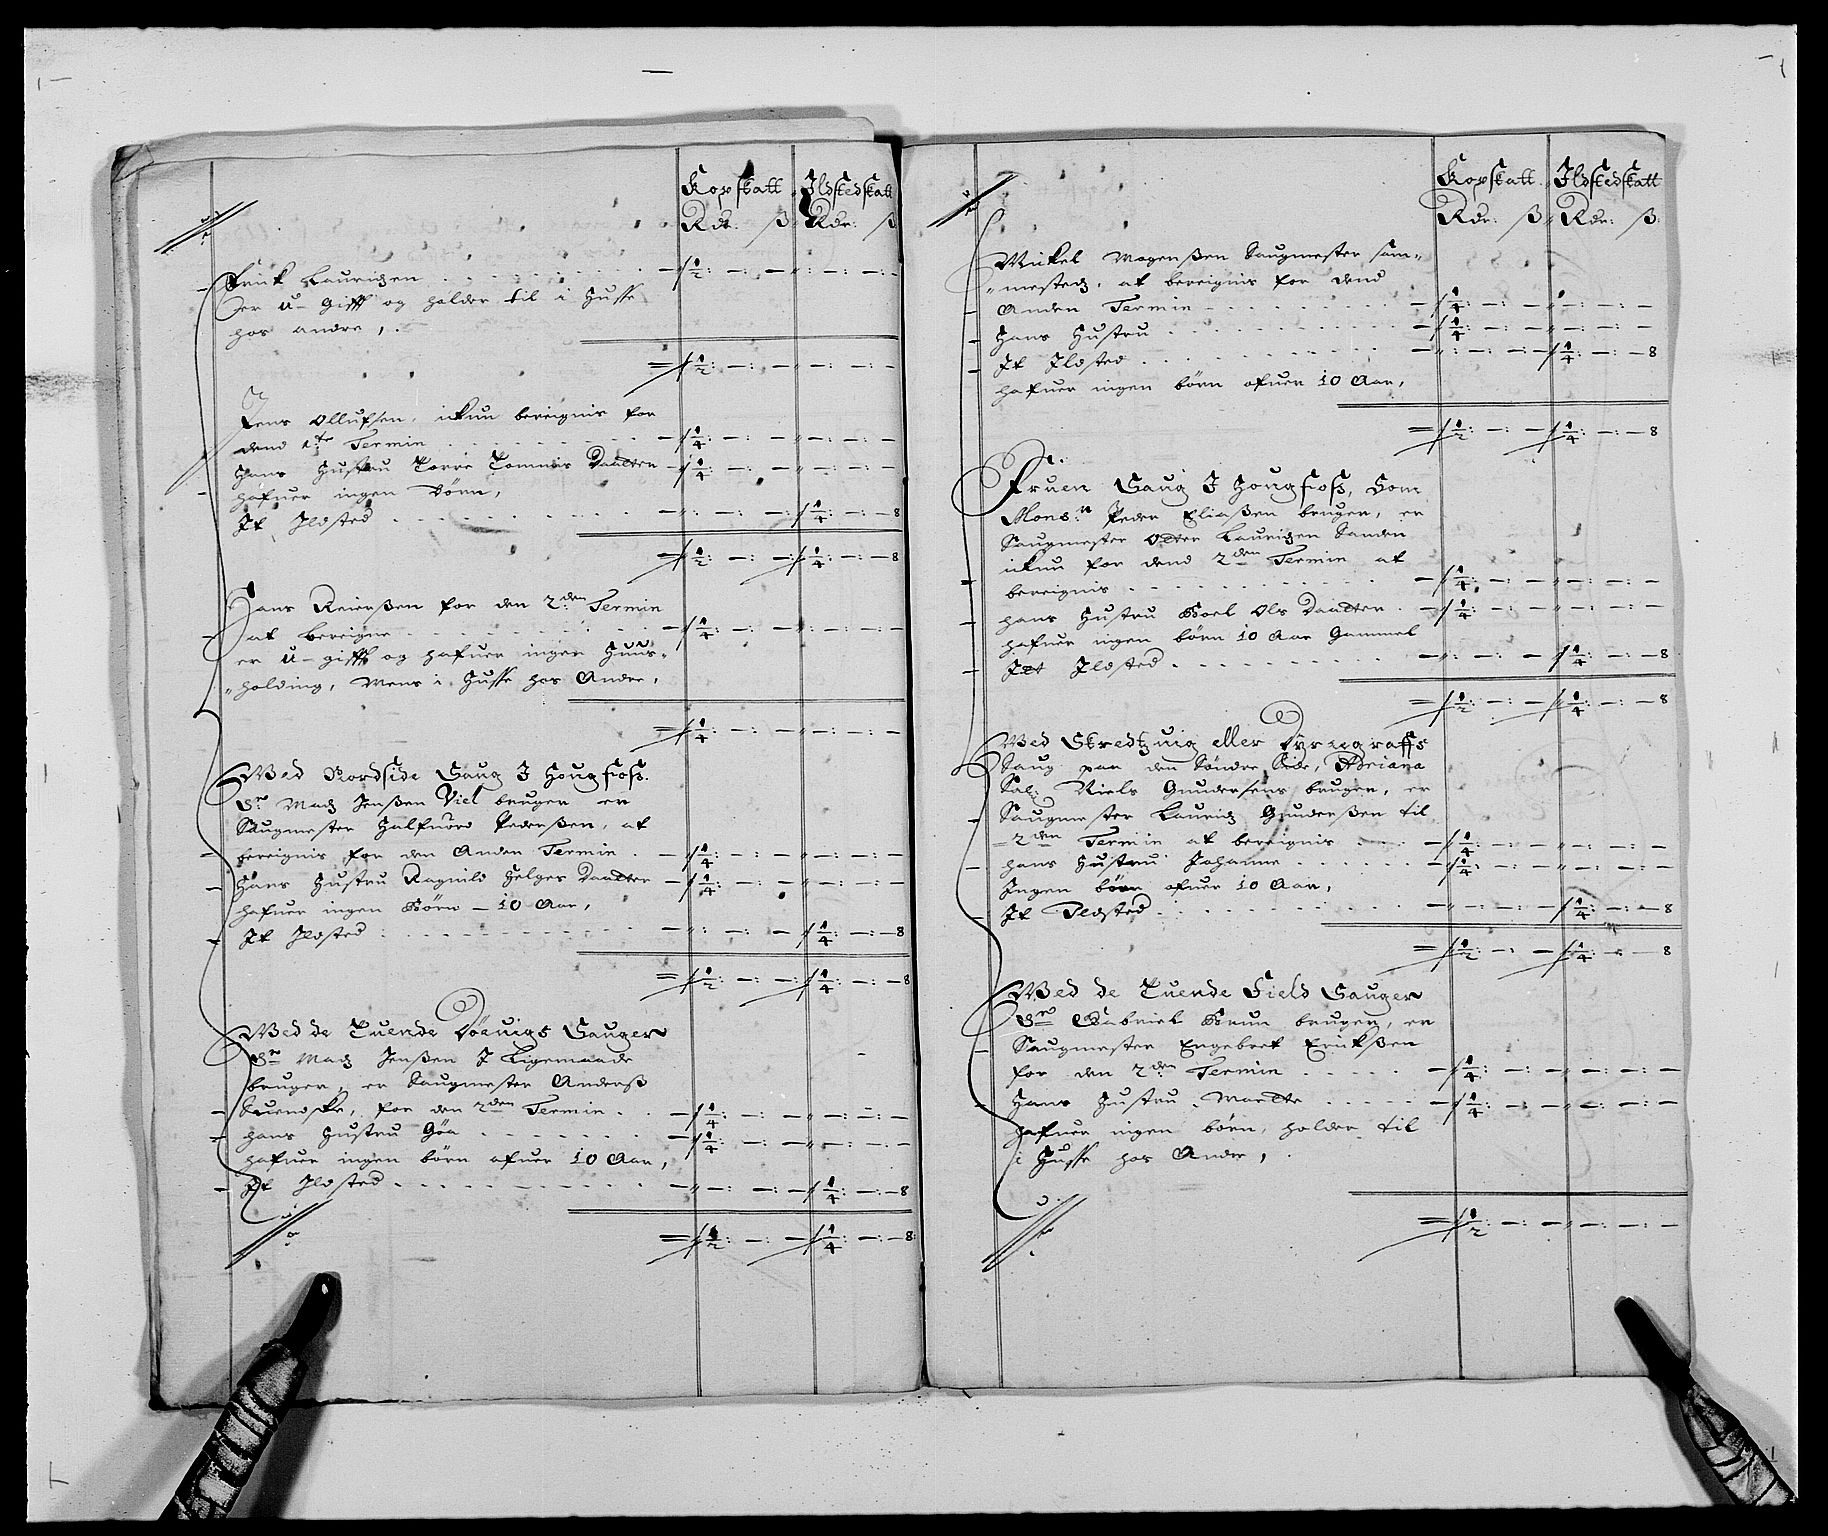 Kopskatt Ildstedskatt
Rdr: ß Rdr: ß
Erick Lauridzen . . . . . . . — 1/2: —: — „ —: —: —
er u-gifft og holder til i Husse
hos andre, .
= 1/2: —: — „ —: —
Jens Ollufsen, ickun bereignis for
dend 1te Termin . . . . . . . — 1/4: —: — „ —: —: —
Hans Hustru Torre Tommis Daatter — 1/4: —: — „ —: —: —
hafuer ingen børn,
It Ildsted . . . . . . . — „: —: — 1/4: —: — 8
= 1/2: —: — 1/4: —: — 8
Hans Reierßen for den 2den Termin
at bereigne . . . . . . . — 1/4: —: — „ —: —: —
er u-gifft og hafuer ingen Huus-
„holding, Mens i Husse hos Andre,
= 1/4: —: — „ —: —: —
Wed Nordside Saug I Hougfoss.
Sr Madz Jenßen Viel bruger er
Saugmester Halfuord Pederßen, at
bereignis for den Anden Termin . — 1/4: —: — „ —: —: —
Hans Hustru Ragnild Helges Daatter — 1/4: —: — „ —: —: —
hafuer ingen Børn — 10 Aar,
It Ildsted . . . . . . . — „: —: — 1/4: —: — 8
= 1/2: —: — 1/4: —: — 8
Wed de Tuende Døeuigs Sauger
Sr Madz Jenßen I Ligemaade
bruger, er Saugmester Anderß
Suendske, for den 2den Termin . . — 1/4: —: — „ —: —: —
hans Hustru Gøa . . . . . . . — 1/4: —: — „ —: —: —
hafuer ingen børn ofuer 10 Aar,
It Ildsted . . . . . . . — „ —: — 1/4: —: — 8
= 1/2: —: — 1/4: —: — 8
Kopskatt Ildstedskatt
Rdr: ß Rdr: ß:
Mickel Mogenßen Saugmester sam-
„mestedz, at bereignis for dend
Anden Termin . . . . . . . — 1/4: —: — „ —: —: —
Hans Hustru . . . . . . . — 1/4: —: — „ —: —: —
It Ildsted . . . . . . . — „: —: — 1/4: —: — 8
hafuer ingen børn ofuer 10 Aar,
= 1/2: —: — 1/4: —: — 8
Fruen Saug I Hougfoss, Som
Monsr Peder Eliaßen bruger, er
Saugmester Otter Lauridzen Sanden
ickun for dend 2den Termin at
bereignis . . . . . . . — 1/4: —: — „ —: —: —
hans Hustru Boel Ols Daatter . — 1/4: —: — „ —: —: —
hafuer ingen børn 10 Aar Gammel
Jet Ildsted . . . . . . . — „ —: — 1/4: —: — 8
= 1/2: —: — 1/4: —: — 8
Wed Skredtzuig eller Dyrregraffs
Saug paa den Søndre Side, Adriana
Sal: Niels Gundersens bruger, er
Saugmester Lauridz Gunderßen til
2den Termin at bereignis . . . — 1/4: —: — „ —: —: —
hans Hustru Johanne . . . . . — 1/4: —: — „ —: —: —
Ingen børn ofuer 10 Aar,
It Ildsted . . . . . . . — „ —: — 1/4: —: — 8
= 1/2: —: — 1/4: —: — 8
Wed de Tuende Field Sauger
Sr Gabriel Brun bruger, er
Saugmester Engebret Erickßen
for den 2den Termin . . . . . — 1/4: —: — „ —: —: —
Hans Hustru . Martte . . . . . — 1/4: —: — „ —: —: —
hafuer ingen børn, holder til
i Husse hos Andre, .
= 1/2: —: — „ —: —: —